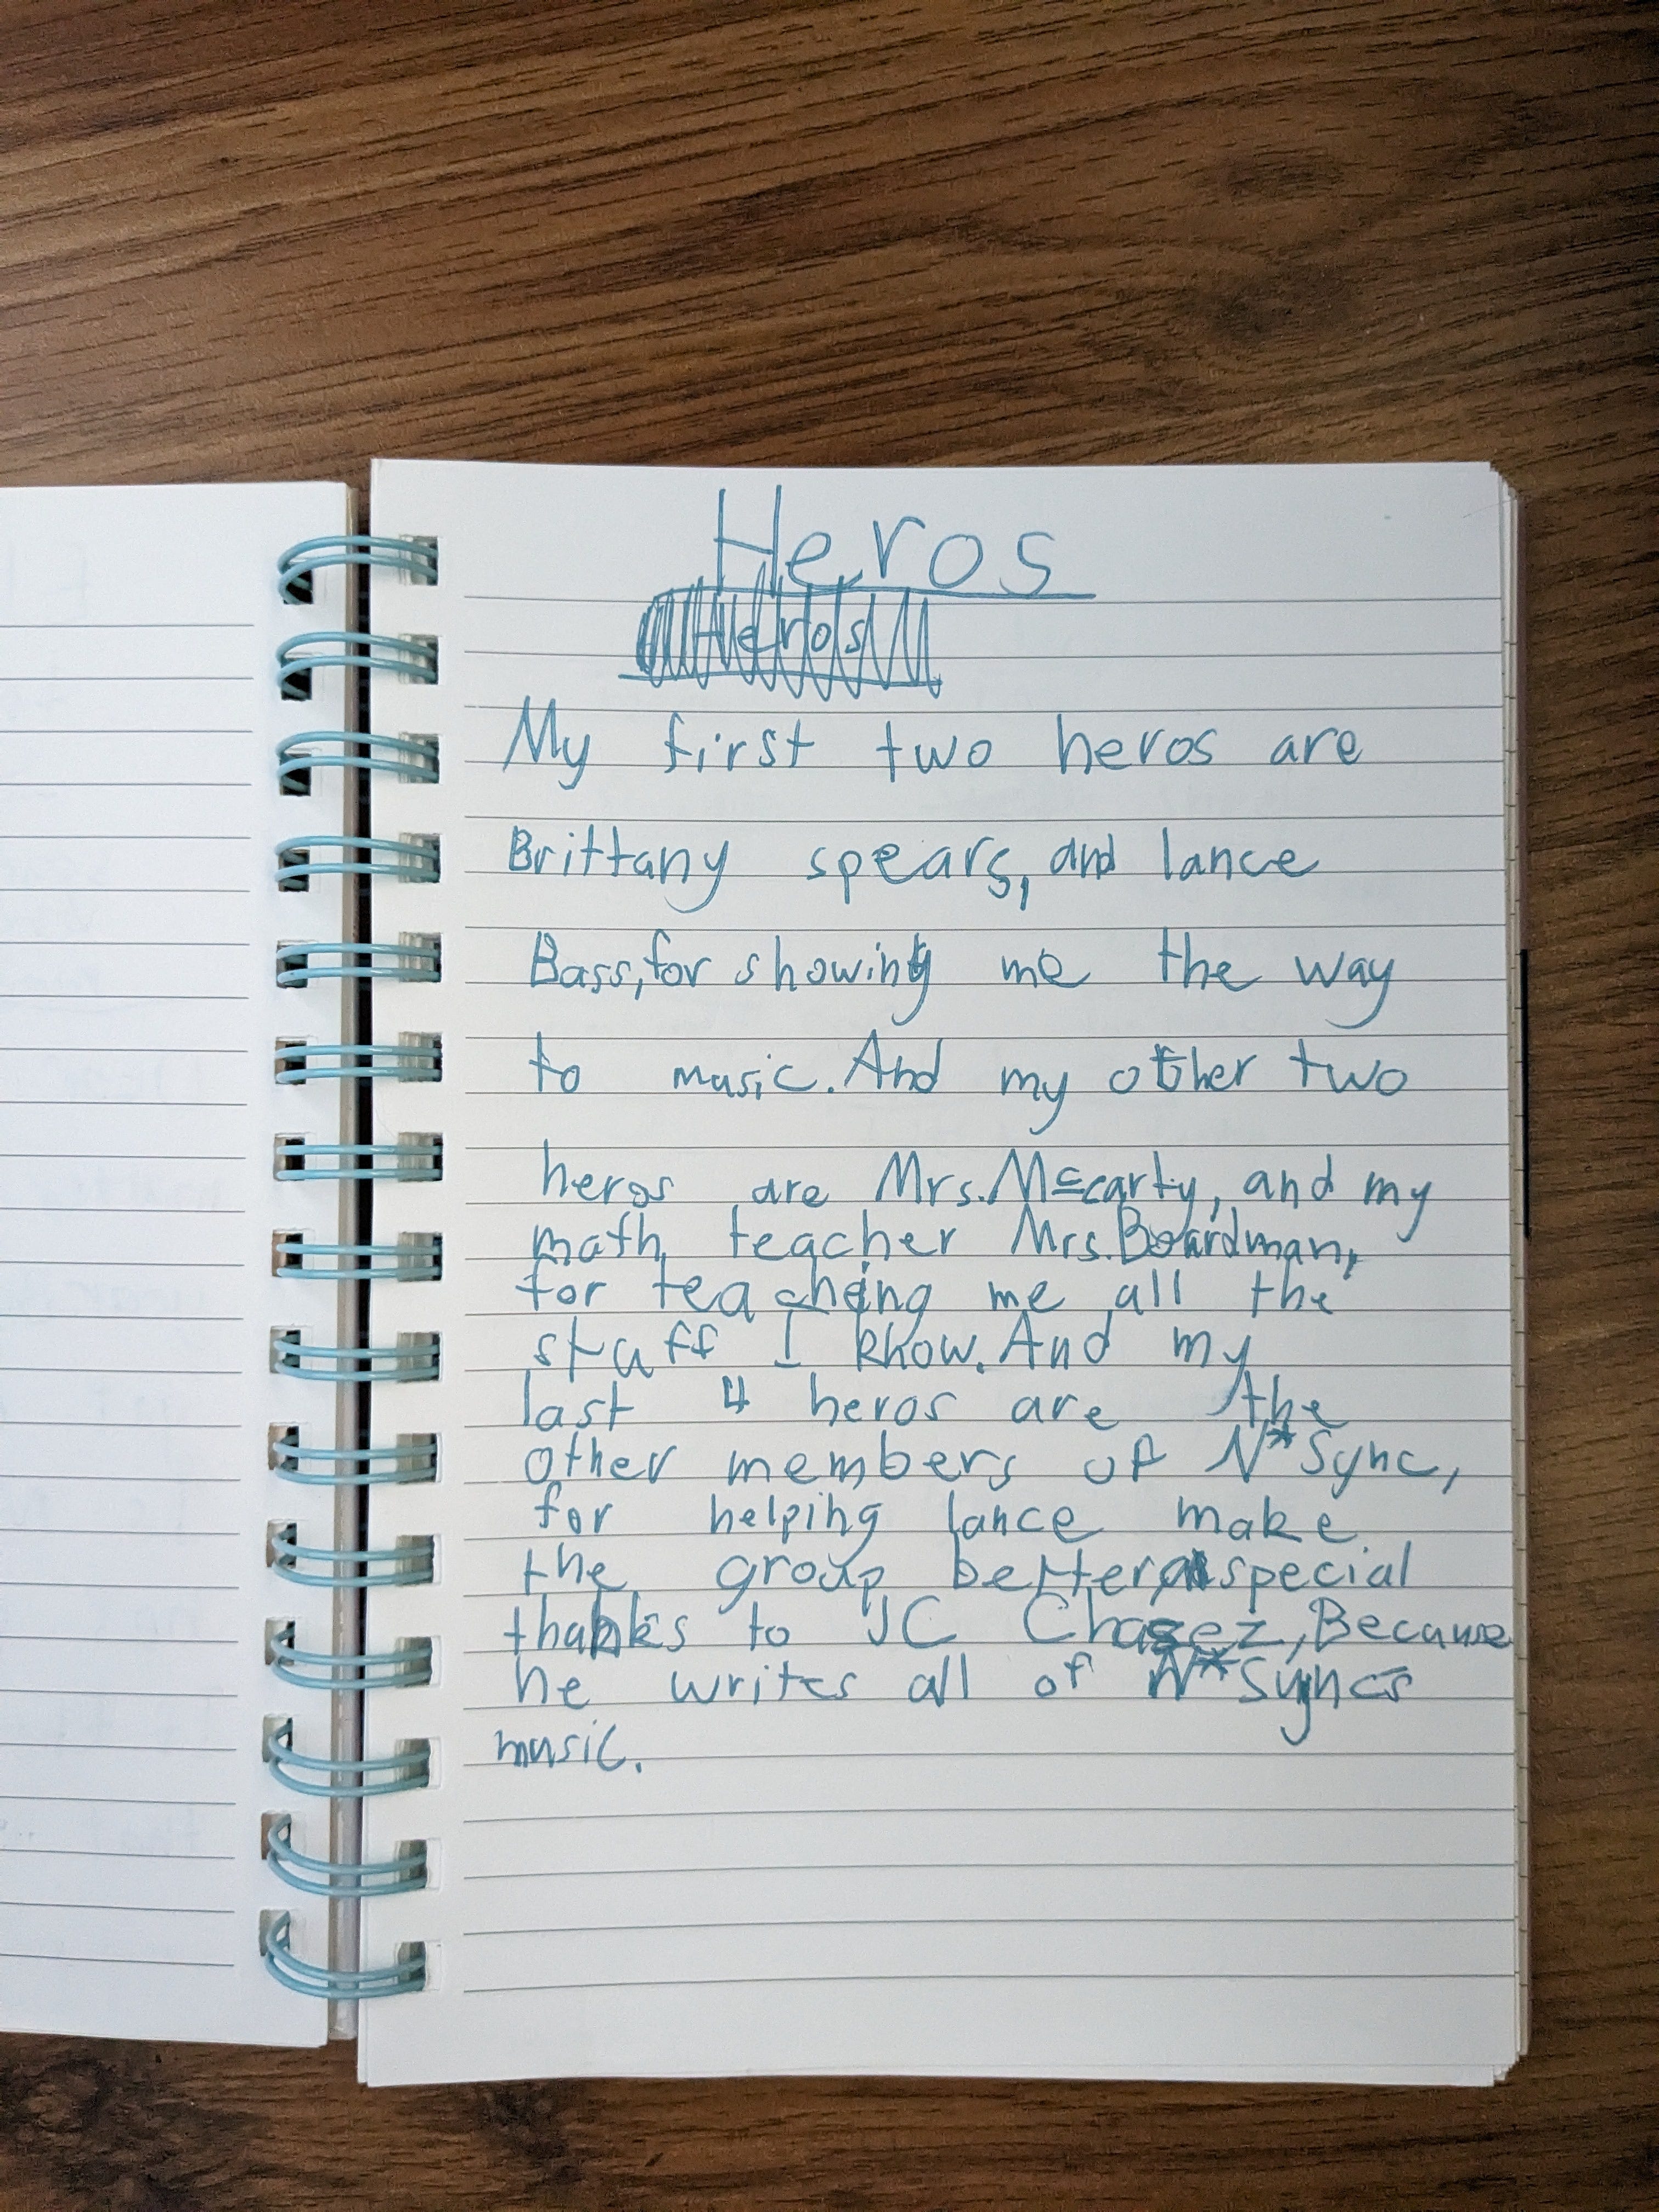 Heros
Heros
My first two heros are
Brittany spears, and lance
Bass, for showing me the way
to music. And my other two
heros are Mrs. Mccarty, and my
math teacher Mrs. Boardman,
for teaching me all the
stuff I know. And my
last 4 heros are the
other members of N*Sync,
for helping lance make
the group better, special
thanks to JC Chasez, Because
he writes all of N*Syncs
music.